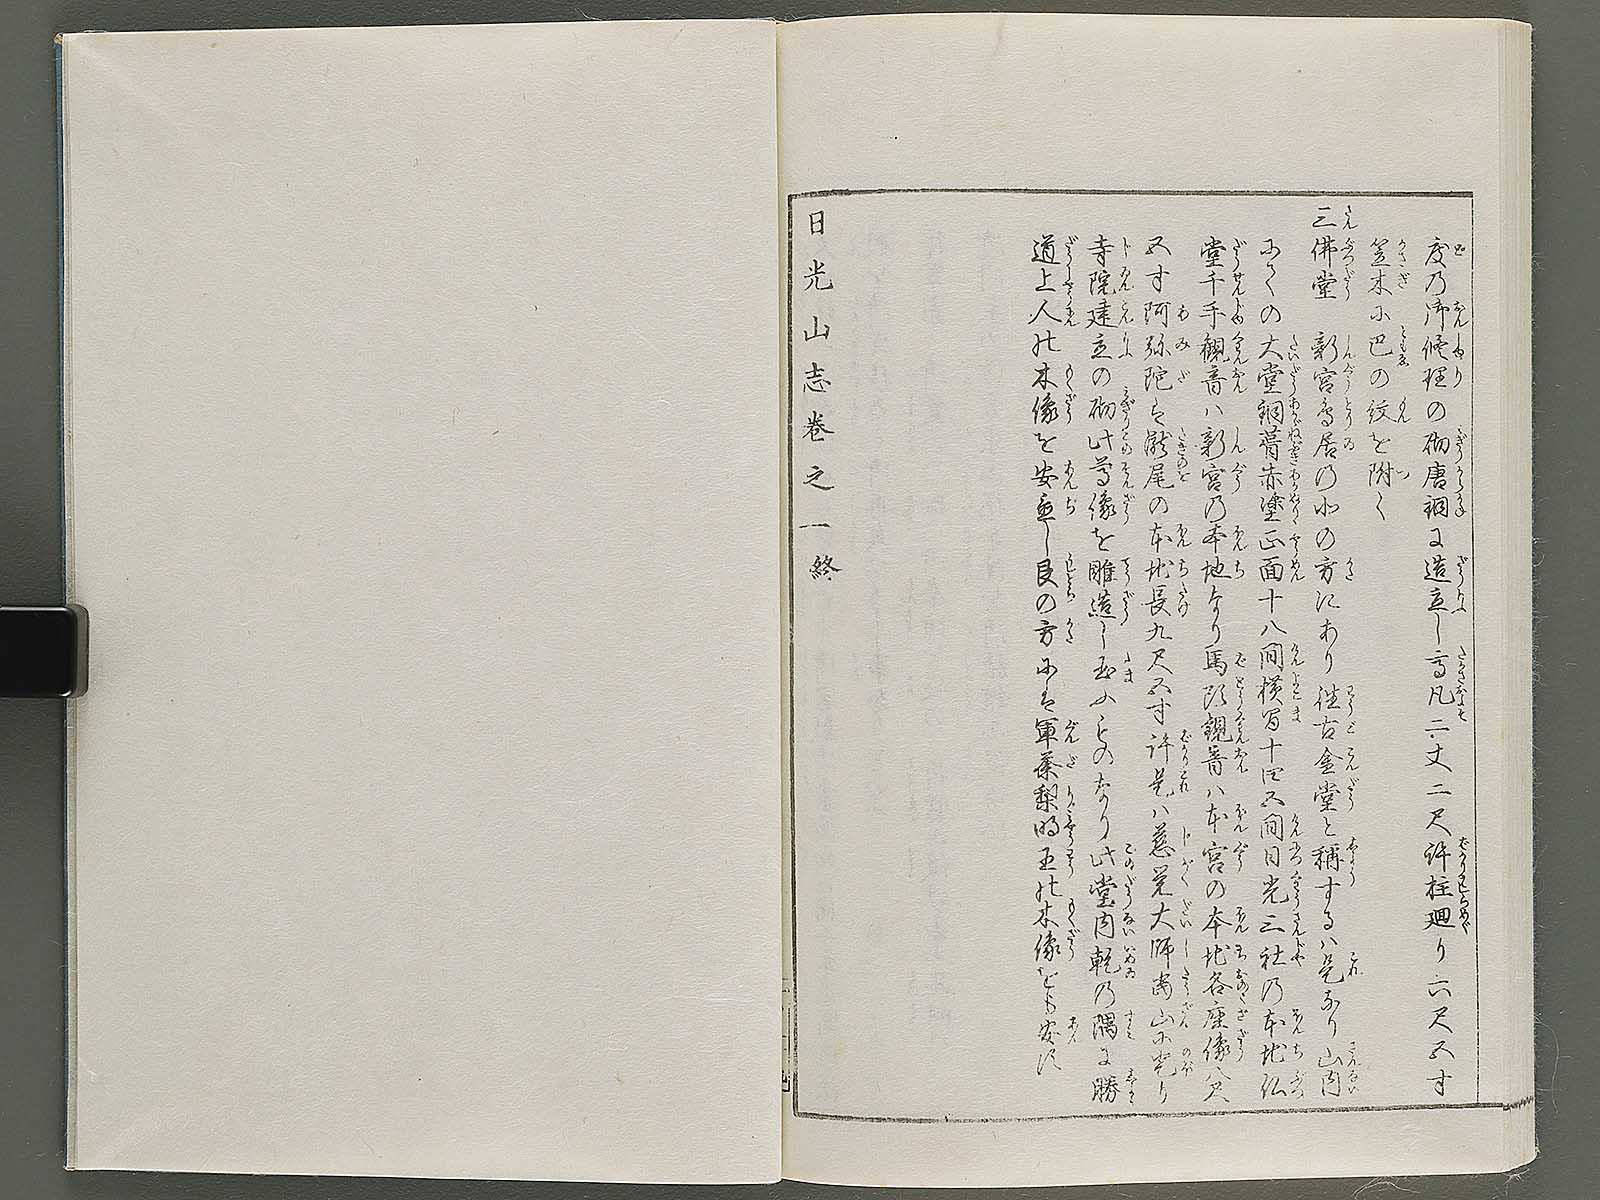 度乃御修理の砌唐銅に造立し高凡二丈二尺許柱廻り六尺五寸
笠木に巴の紋を附く
三佛堂　新宮鳥居の北の方にあり往古金堂と稱するハ是なり山内
の大堂銅葺赤塗正面十八間横間十四五間日光三社乃本地仏
堂千手観音ハ新宮乃本地なり馬頭観音ハ本宮の本地各座像八尺
五寸阿弥陀ハ瀧尾の本地長九尺五寸許是ハ慈覚大師當山に登り
寺院建立の砌此尊像を雕造し玉ふものなり此堂内乾乃隅に勝
道上人の木像を安置し艮の方にハ軍荼梨明王の木像をも安ず
日光山志巻之一終